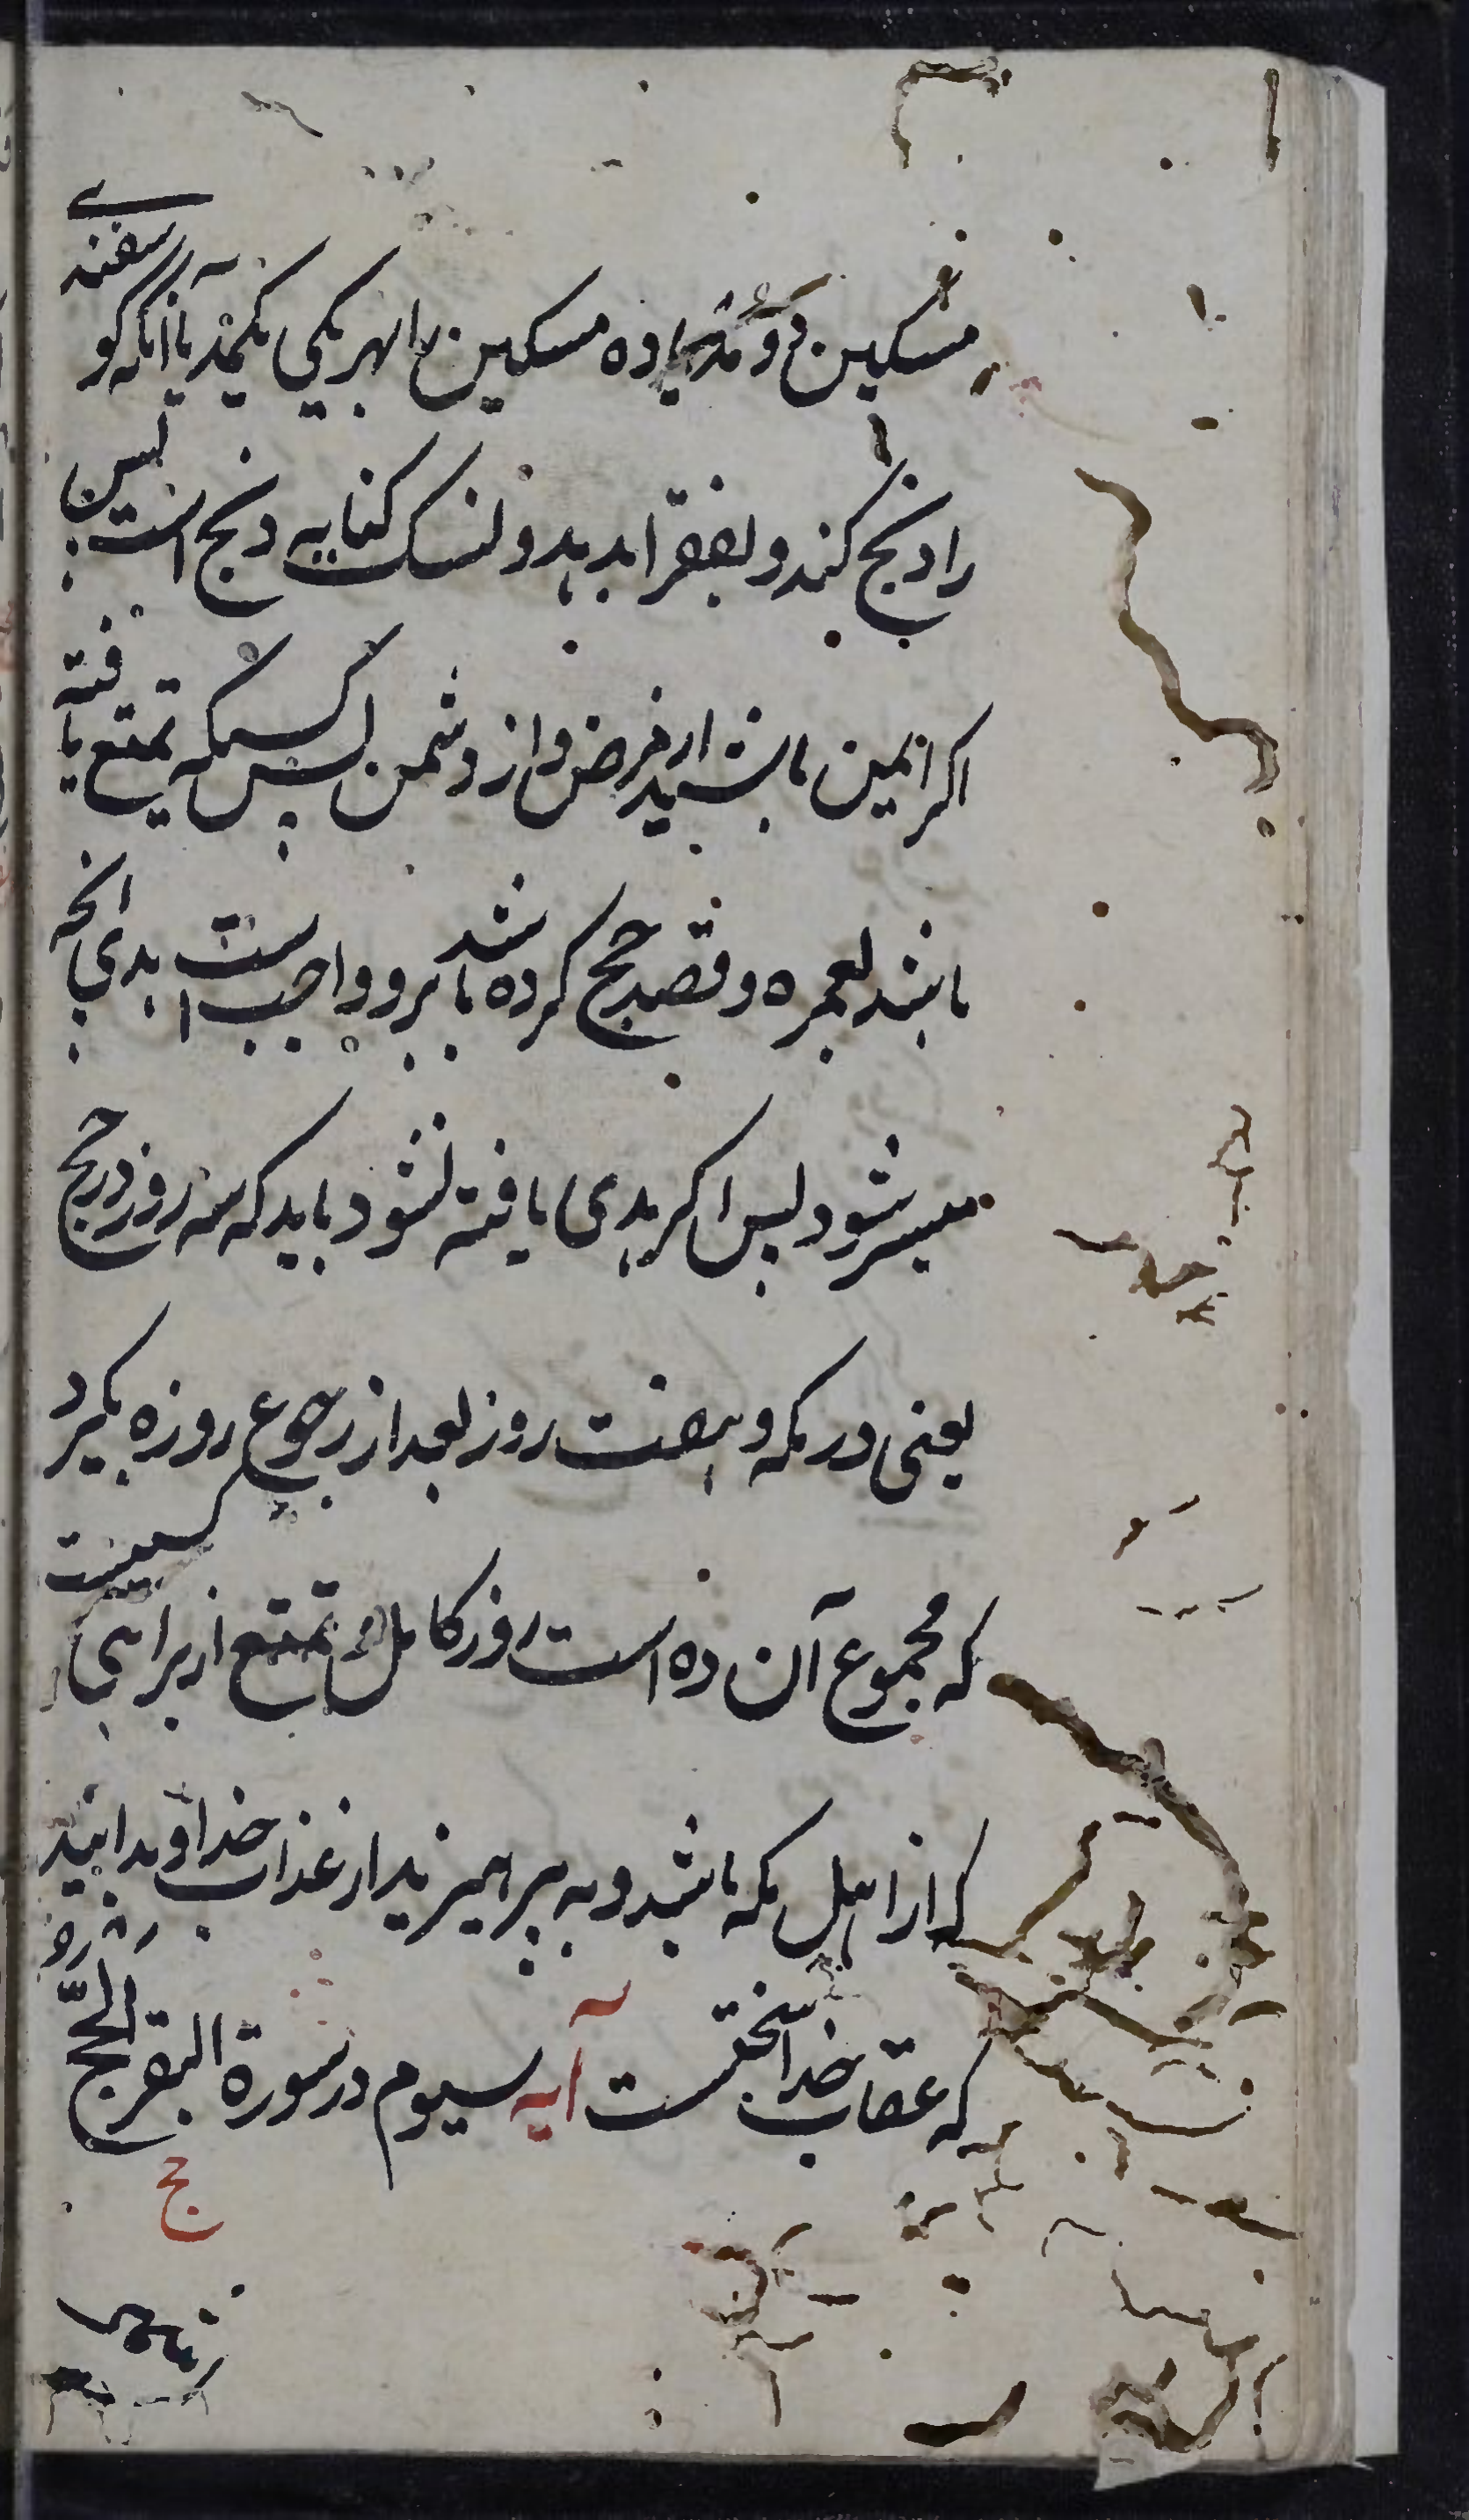 مسکین دو مد یا ده مسکین را بهر یکی یکمد یا آنکه گوسفندی
را ذبح کند و بفقرا بدهد و نسک کنایه ذبح است پس
اکر ایمن باشید از مرض و از دشمن پس کسیکه تمتع یافته
باشد بعمره و قصد حج کرده باشد برو واجب است هدی انچه
میسر شود پس اکر هدی یافته نشود باید که سه روز در حج
یعنی در مکه و هفت روز بعد از رجوع روزه بگیرد
که مجموع آن ده است روز کامل و تمتع از برای کسیست
که از اهل مکه باشد و به پرهیزید از عذاب خدا و بدانید
که عقاب خدا سختست آیه سیوم در سورة البقر الحج
ح